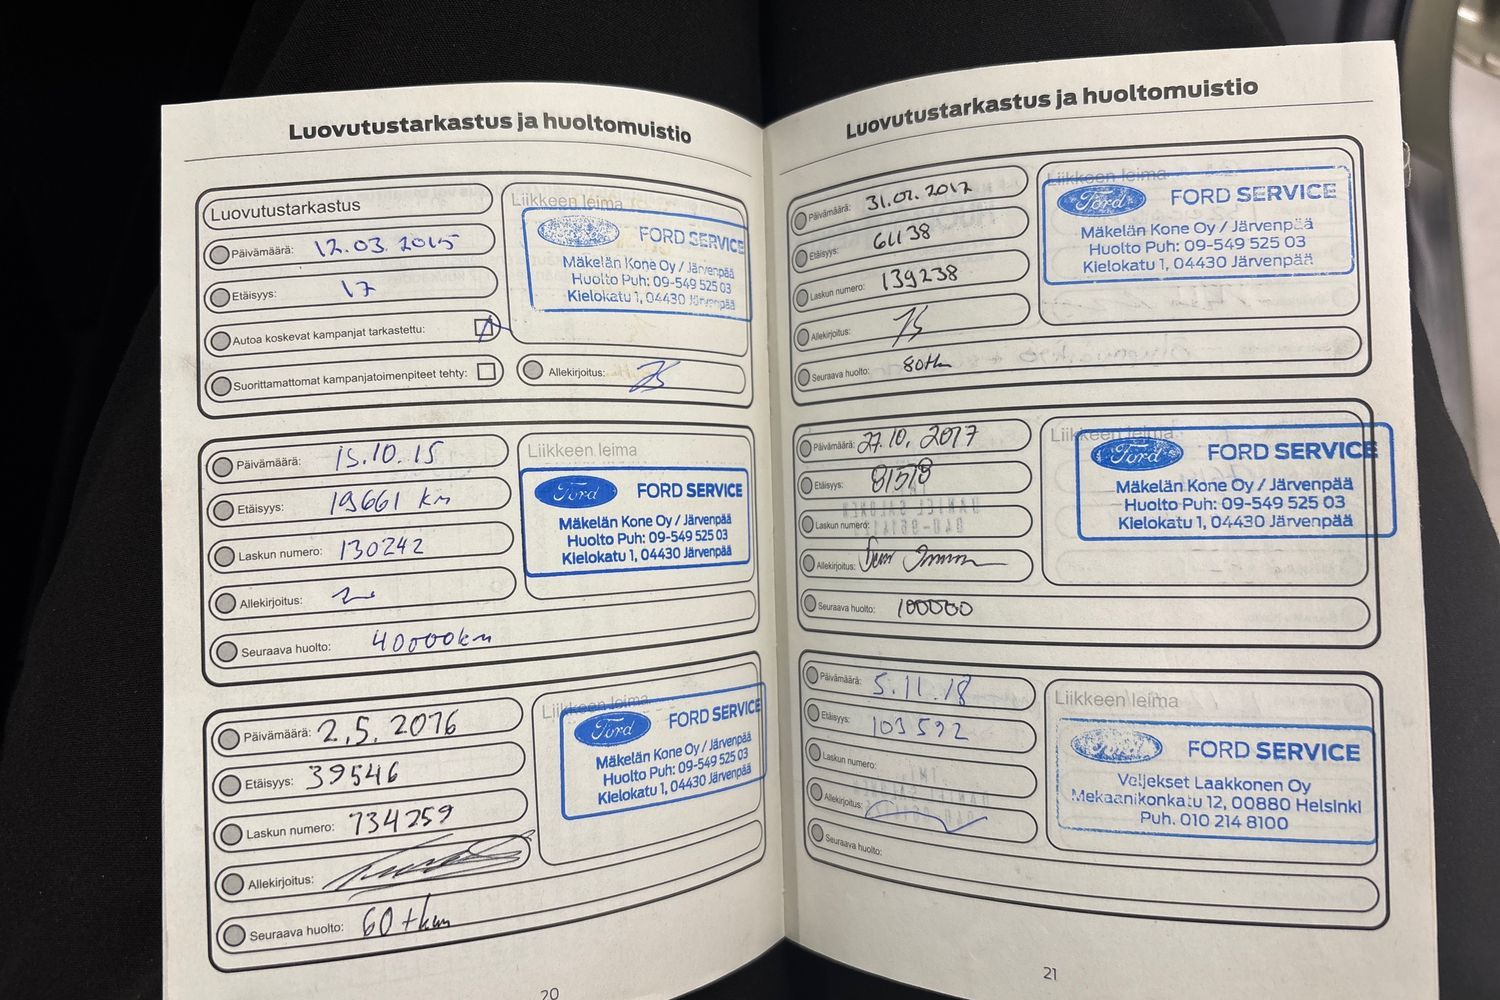 Luovutustarkastus ja huoltomuistio
Luovutustarkastus
Päivämäärä: 12.03.2015
Etäisyys: 17
Autoa koskevat kampanjat tarkastettu:
Suorittamattomat kampanjatoimenpiteet tehty:
Liikkeen leima
FORD SERVICE
Mäkelän Kone Oy / Järvenpää
Huolto Puh: 09-549 525 03
Kielokatu 1, 04430 Järvenpää
Allekirjoitus:
Päivämäärä: 15.10.15
Etäisyys: 19661 km
Laskun numero: 130242
Allekirjoitus:
Seuraava huolto: 40000km
Liikkeen leima
Ford FORD SERVICE
Mäkelän Kone Oy / Järvenpää
Huolto Puh: 09-549 525 03
Kielokatu 1, 04430 Järvenpää
Päivämäärä: 2.5.2016
Etäisyys: 39546
Laskun numero: 134259
Allekirjoitus:
Seuraava huolto: 60 tkm
Liikkeen leima
Ford FORD SERVICE
Mäkelän Kone Oy / Järvenpää
Huolto Puh: 09-549 525 03
Kielokatu 1, 04430 Järvenpää
20
Luovutustarkastus ja huoltomuistio
Päivämäärä: 31.02.2017
Etäisyys: 61138
Laskun numero: 139238
Allekirjoitus:
Seuraava huolto: 80tkm
Liikkeen leima
Ford FORD SERVICE
Mäkelän Kone Oy / Järvenpää
Huolto Puh: 09-549 525 03
Kielokatu 1, 04430 Järvenpää
Päivämäärä: 27.10.2017
Etäisyys: 81578
Laskun numero:
Allekirjoitus:
Seuraava huolto: 100000
Liikkeen leima
Ford FORD SERVICE
Mäkelän Kone Oy / Järvenpää
Huolto Puh: 09-549 525 03
Kielokatu 1, 04430 Järvenpää
Päivämäärä: 5.11.18
Etäisyys: 103592
Laskun numero:
Allekirjoitus:
Seuraava huolto:
Liikkeen leima
Ford FORD SERVICE
Veljekset Laakkonen Oy
Mekaanikonkatu 12, 00880 Helsinki
Puh. 010 214 8100
21